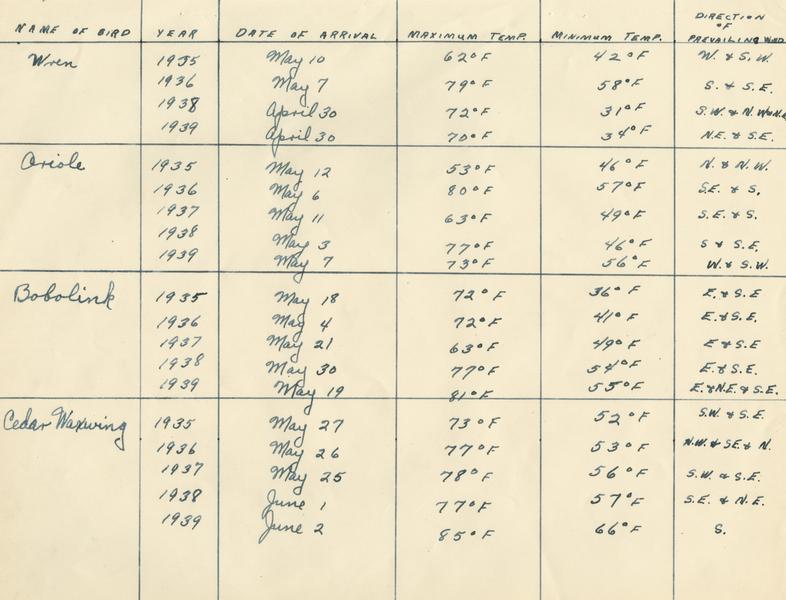 NAME OF BIRD YEAR DATE OF ARRIVAL MAXIMUM TEMP. MINIMUM TEMP. DIRECTION OF PREVAILING WIND
Wren 1935 May 10 62°F 42°F W. & S.W.
1936 May 7 79°F 58°F S. & S.E.
1938 April 30 72°F 31°F S.W. & N.W. & N.E.
1939 April 30 70°F 34°F N.E. & S.E.
Oriole 1935 May 12 53°F 46°F N. & N.W.
1936 May 6 80°F 57°F S.E. & S.
1937 May 11 63°F 49°F S.E. & S.
1938 May 3 77°F 46°F S & S.E.
1939 May 7 73°F 56°F W. & S.W.
Bobolink 1935 May 18 72°F 36°F E. & S.E
1936 May 4 72°F 41°F E. & S.E.
1937 May 21 63°F 49°F E & S.E
1938 May 30 77°F 54°F E. & S.E.
1939 May 19 81°F 55°F E. & N.E. & S.E.
Cedar Waxwing 1935 May 27 73°F 52°F S.W. & S.E.
1936 May 26 77°F 53°F N.W. & S.E. & N.
1937 May 25 78°F 56°F S.W. & S.E.
1938 June 1 77°F 57°F S.E. & N.E.
1939 June 2 85°F 66°F S.